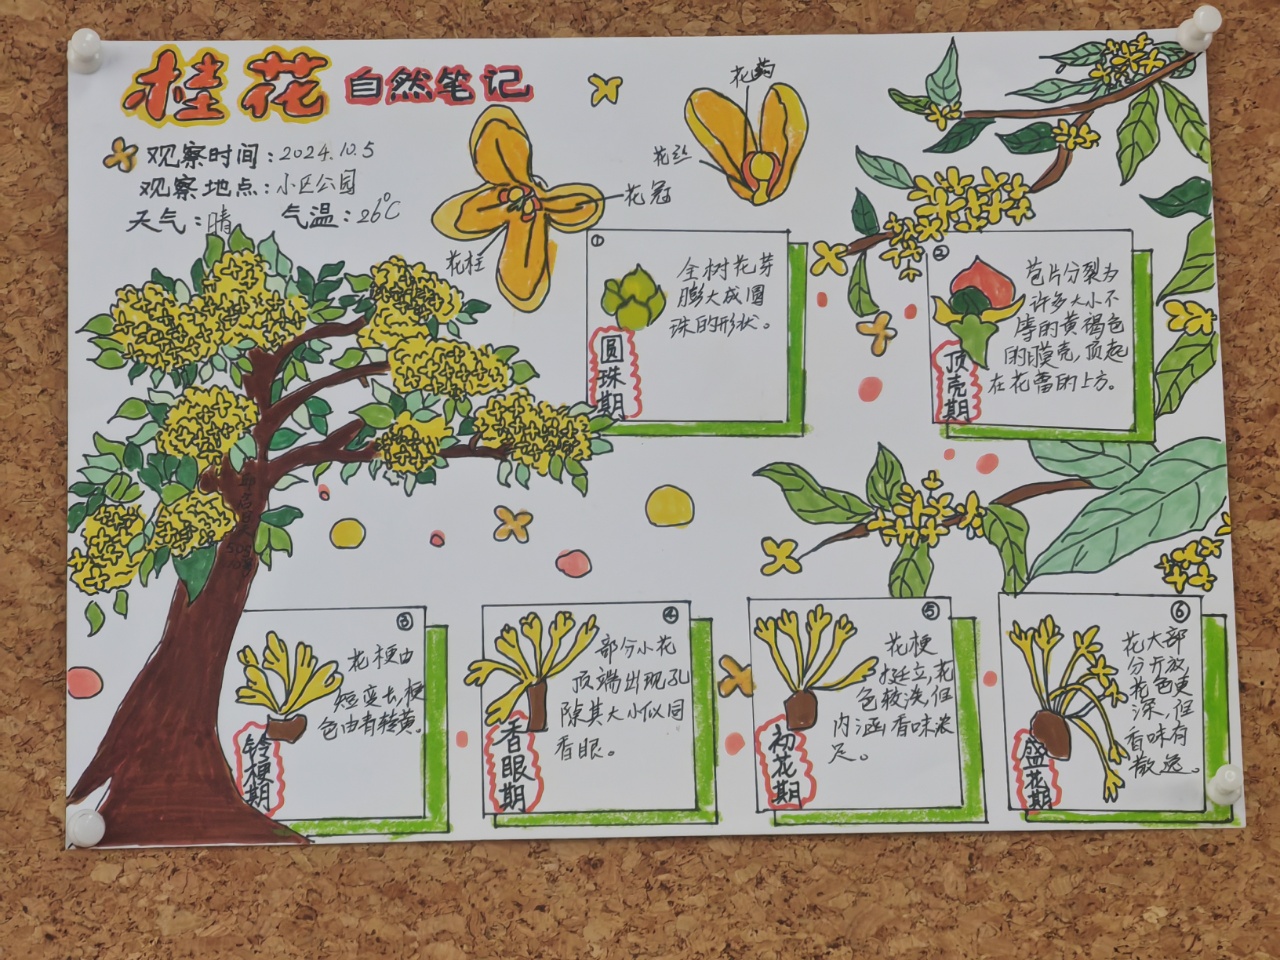 桂花 自然笔记
观察时间:2024.10.5
观察地点:小区公园
天气:晴 气温:26℃
花药
花丝
花冠
花柱
①
全树花芽
膨大成圆
珠的形状。
圆珠期
②
苞片分裂为
许多大小不
等的黄褐色
的膜壳,顶起
在花蕾的上方。
顶壳期
③
花梗由
短变长,梗
色由青转黄。
铃梗期
④
部分小花
顶端出现孔
隙其大小似同
香眼。
香眼期
⑤
花梗
挺立,花
色较浅,但
内涵香味浓
足。
初花期
⑥
花大部
分开放,
花色更
深,但
香味有
散逸。
盛花期